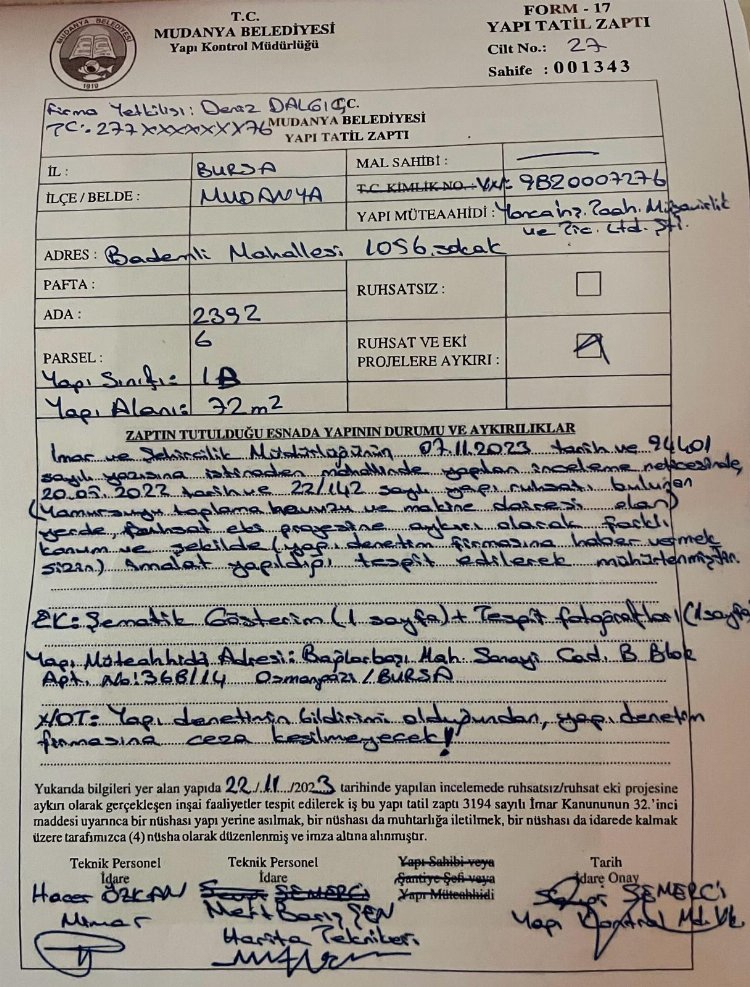 MUDANYA BELEDİYESİ
1919
T.C.
MUDANYA BELEDİYESİ
Yapı Kontrol Müdürlüğü
FORM - 17
YAPI TATİL ZAPTI
Cilt No.: 27
Sahife : 001343
Firma Yetkilisi: Deniz DALGIÇ
TC: 277XXXXXXXX76
T.C.
MUDANYA BELEDİYESİ
YAPI TATİL ZAPTI
İL : BURSA
MAL SAHİBİ :
İLÇE / BELDE : MUDANYA
T.C. KİMLİK NO. : 9820007276
YAPI MÜTEAAHİDİ : İnş. Taah. Müşavirlik
ve Tic. Ltd. Şti.
ADRES : Bademli Mahallesi 1056. sokak
PAFTA :
RUHSATSIZ :
ADA : 2392
PARSEL : 6
RUHSAT VE EKİ
PROJELERE AYKIRI :
Yapı Sınıfı: 1B
Yapı Alanı: 72 m2
ZAPTIN TUTULDUĞU ESNADA YAPININ DURUMU VE AYKIRILIKLAR
İmar ve Şehircilik Müdürlüğünün, 07.11.2023 tarih ve 94401
sayılı yazısına istinaden mahallinde yapılan inceleme neticesinde,
20.05.2022 tarih ve 22/142 sayılı yapı ruhsatı bulunan
(Yamursuyu toplama havuzu ve makine dairesi olan)
yerde, ruhsat eki projesine aykırı olarak farklı
konum ve şekilde (yapı denetim firmasına haber vermek
sizin) imalat yapıldığı tespit edilerek mühürlenmiştir.
EK: Şematik Gösterim (1 sayfa) + Tespit fotoğrafları (1 sayfa)
Yapı Müteahhidi Adresi: Bağlarbaşı Mah. Sanayi Cad. B Blok
Apt. No: 368/14 Osmangazi / BURSA
NOT: Yapı denetimin bildirimi olduğundan, yapı denetim
firmasına ceza kesilmeyecek!
Yukarıda bilgileri yer alan yapıda 22./.11./2023 tarihinde yapılan incelemede ruhsatsız/ruhsat eki projesine
aykırı olarak gerçekleşen inşai faaliyetler tespit edilerek iş bu yapı tatil zaptı 3194 sayılı İmar Kanununun 32.'inci
maddesi uyarınca bir nüshası yapı yerine asılmak, bir nüshası da muhtarlığa iletilmek, bir nüshası da idarede kalmak
üzere tarafımızca (4) nüsha olarak düzenlenmiş ve imza altına alınmıştır.
Teknik Personel
İdare
Hacer ÖZKAN
Mimar
Teknik Personel
İdare
ŞEMERCİ
Mert Barış ŞEN
Harita Teknikeri
Yapı Sahibi veya
Şantiye Şefi veya
Yapı Müteahhidi
Tarih
İdare Onay
ŞEMERCİ
Yapı Kontrol Md. Vk.